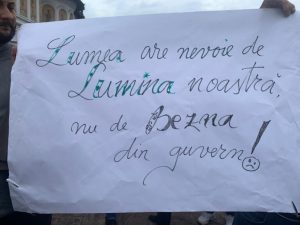 Lumea are nevoie de
Lumina noastră,
nu de Bezna
din guvern!